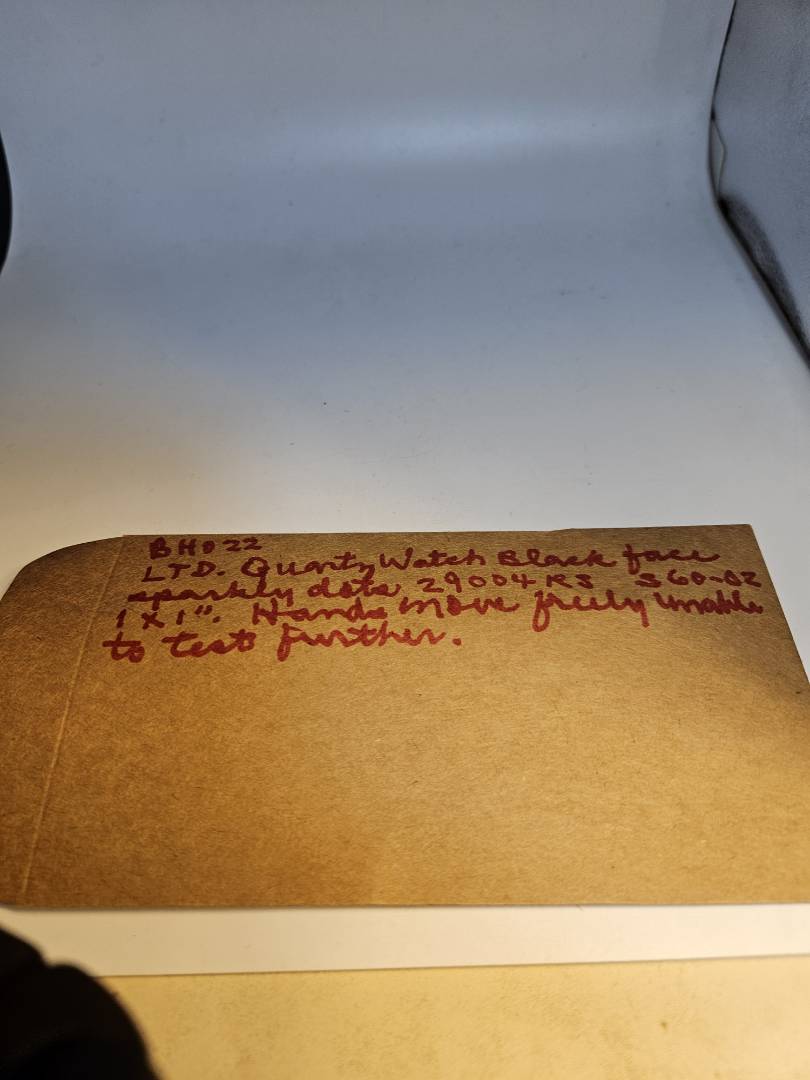 BH022
LTD. Quartz Watch Black face
sparkly dots 29004RS S60-02
1 X 1". Hands move freely Unable
to test further.